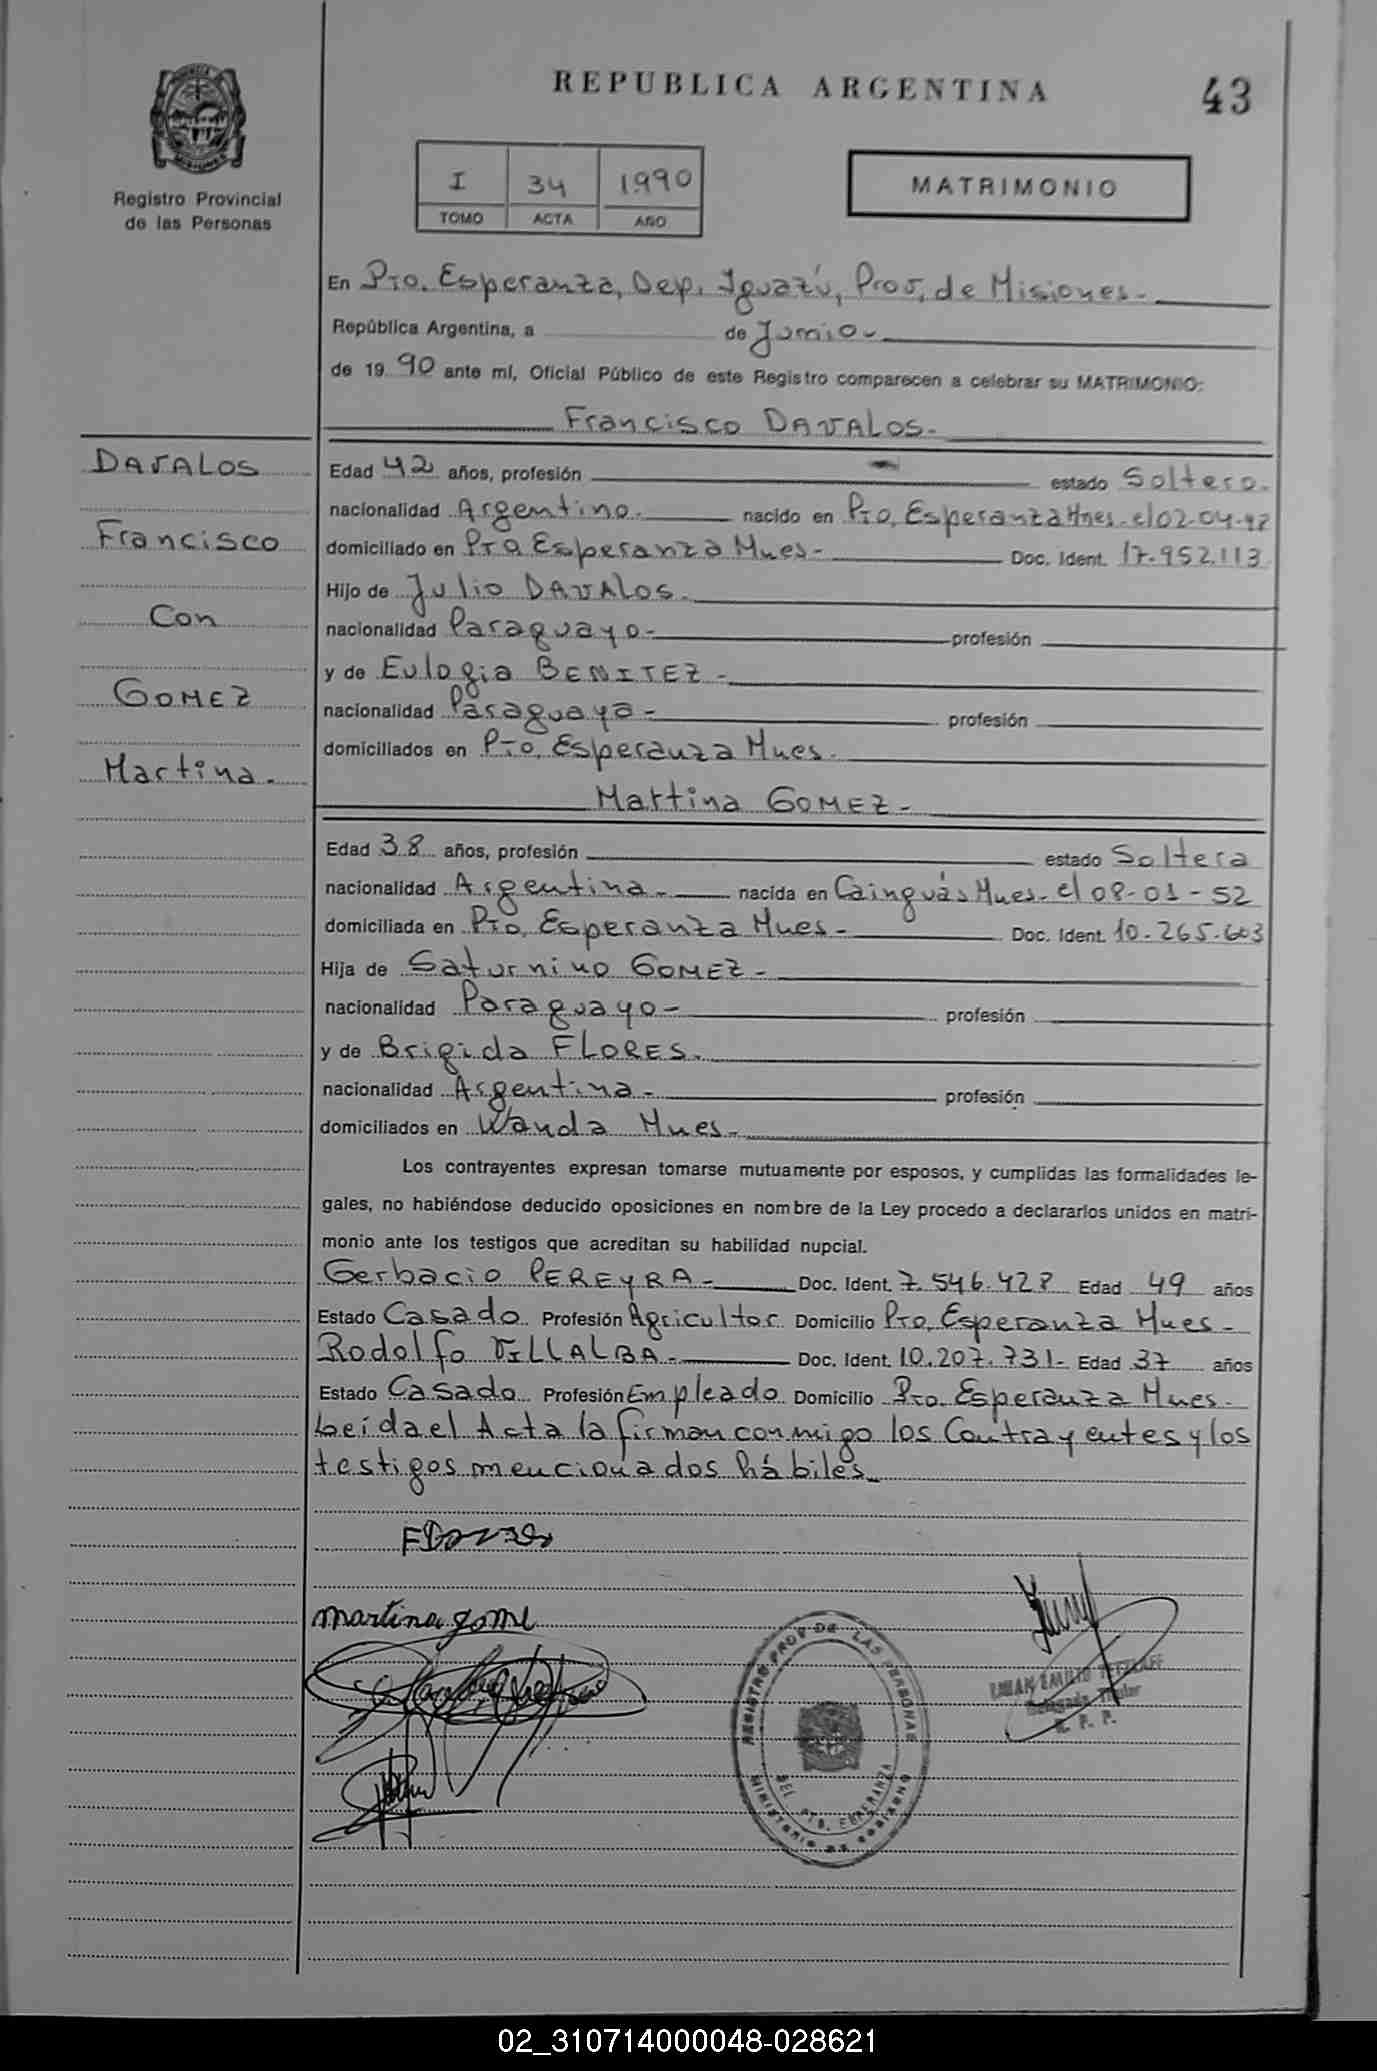 REPUBLICA ARGENTINA
43
PROVINCIA DE MISIONES
Registro Provincial
de las Personas
I 34 1990
TOMO ACTA AÑO
MATRIMONIO
En Pto. Esperanza, Dep. Iguazú, Prov. de Misiones.-
República Argentina, a de Junio-
de 19 90 ante mí, Oficial Público de este Registro comparecen a celebrar su MATRIMONIO:
Francisco DAVALOS.-
DAVALOS
Francisco
Con
GOMEZ
Martina.-
Edad 42 años, profesión estado Soltero.
nacionalidad Argentino. nacido en Pto. Esperanza Mnes. el 02-04-
domiciliado en Pto Esperanza Mnes- Doc. Ident. 17.952.113
Hijo de Julio DAVALOS.
nacionalidad Paraguayo- profesión
y de Eulogia BENITEZ-
nacionalidad Paraguaya- profesión
domiciliados en Pto. Esperanza Mnes.
Martina GOMEZ-
Edad 38 años, profesión estado Soltera
nacionalidad Argentina- nacida en Cainguás Mnes- el 08-01-52
domiciliada en Pto. Esperanza Mnes- Doc. Ident. 10.265.603
Hija de Saturnino GOMEZ-
nacionalidad Paraguayo- profesión
y de Brigida FLORES.
nacionalidad Argentina- profesión
domiciliados en Wanda Mnes-
Los contrayentes expresan tomarse mutuamente por esposos, y cumplidas las formalidades le-
gales, no habiéndose deducido oposiciones en nombre de la Ley procedo a declararlos unidos en matri-
monio ante los testigos que acreditan su habilidad nupcial.
Gerbacio PEREYRA- Doc. Ident. 7.546.428 Edad 49 años
Estado Casado Profesión Agricultor Domicilio Pto. Esperanza Mnes-
Rodolfo VILLALBA- Doc. Ident. 10.207.731- Edad 37 años
Estado Casado Profesión Empleado Domicilio Pto. Esperanza Mnes.
Leída el Acta la firman conmigo los Contrayentes y los
testigos mencionados hábiles-
martina gome
REGISTRO PROV DE LAS PERSONAS
DEL PTO. ESPERANZA
MINISTERIO DE GOBIERNO
JUAN EMILIO
Delegado Titular
R. P. P.
02_310714000048-028621